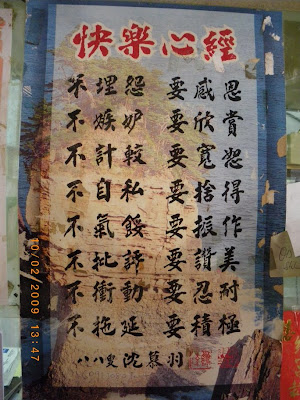 快樂心經
不埋怨 要感恩
不嫉妒 要欣賞
不計較 要寬恕
不自私 要捨得
不氣餒 要振作
不批評 要讚美
不衝動 要忍耐
不拖延 要積極
八八叟 沈慕羽
10/02/2009 13:47